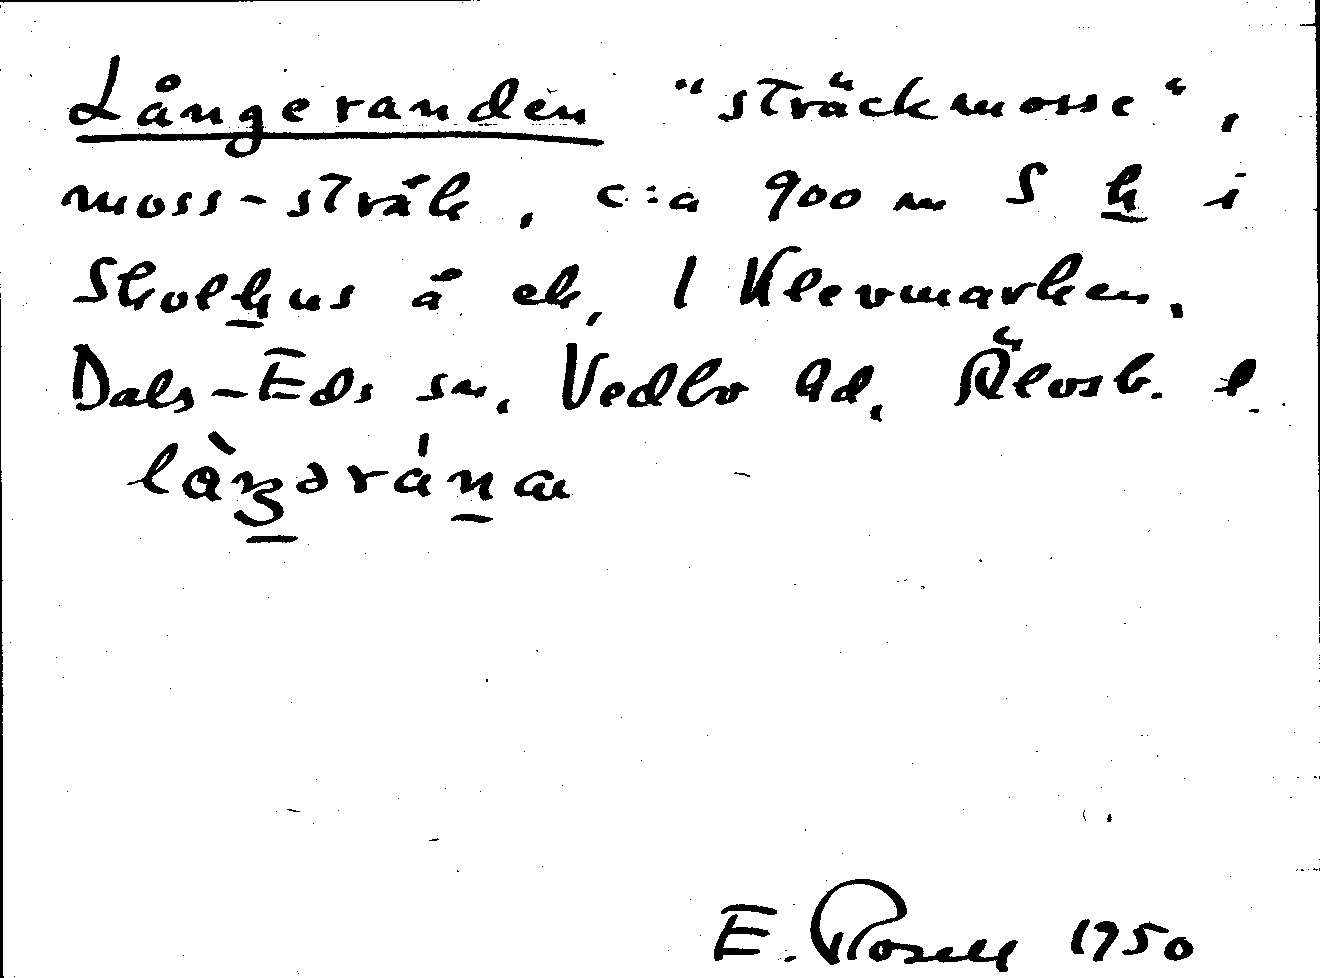 Långeranden "sträckmosse",
moss-stråk, c:a 900 m S h i
Skolhus å ek, 1 Klevmarken.
Dals-Eds sn. Vedbo hd. Älvsb. l
làŋəránɑ
E. Rosell 1950